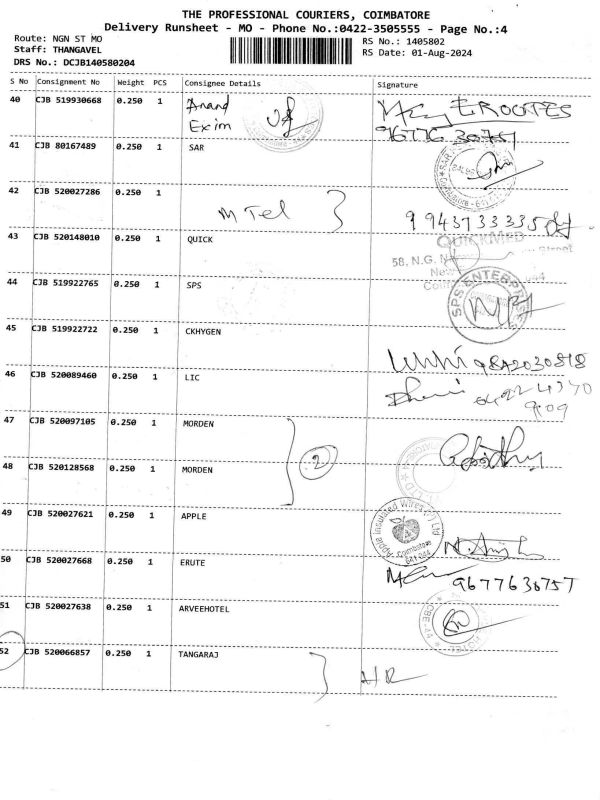 THE PROFESSIONAL COURIERS, COIMBATORE
Delivery Runsheet - MO - Phone No.:0422-3505555 - Page No.:4
Route: NGN ST MO
RS No.: 1405802
Staff: THANGAVEL
RS Date: 01-Aug-2024
DRS No.: DCJB140580204
S No Consignment No Weight PCS Consignee Details Signature
40 CJB 519930668 0.250 1 Anand Exim EROOTES
9677630757
41 CJB 80167489 0.250 1 SAR
42 CJB 520027286 0.250 1
M Tel 9943733335
43 CJB 520148010 0.250 1 QUICK QUICKMED
58, N.G. Street
44 CJB 519922765 0.250 1 SPS SPS ENTERPRISES
45 CJB 519922722 0.250 1 CKHYGEN
9842030818
46 CJB 520089460 0.250 1 LIC 0422 4370
909
47 CJB 520097105 0.250 1 MORDEN
2
48 CJB 520128568 0.250 1 MORDEN
49 CJB 520027621 0.250 1 APPLE Apple Insulated Wires (P) Ltd
Coimbatore
641 044
50 CJB 520027668 0.250 1 ERUTE 9677630757
51 CJB 520027638 0.250 1 ARVEEHOTEL
52 CJB 520066857 0.250 1 TANGARAJ